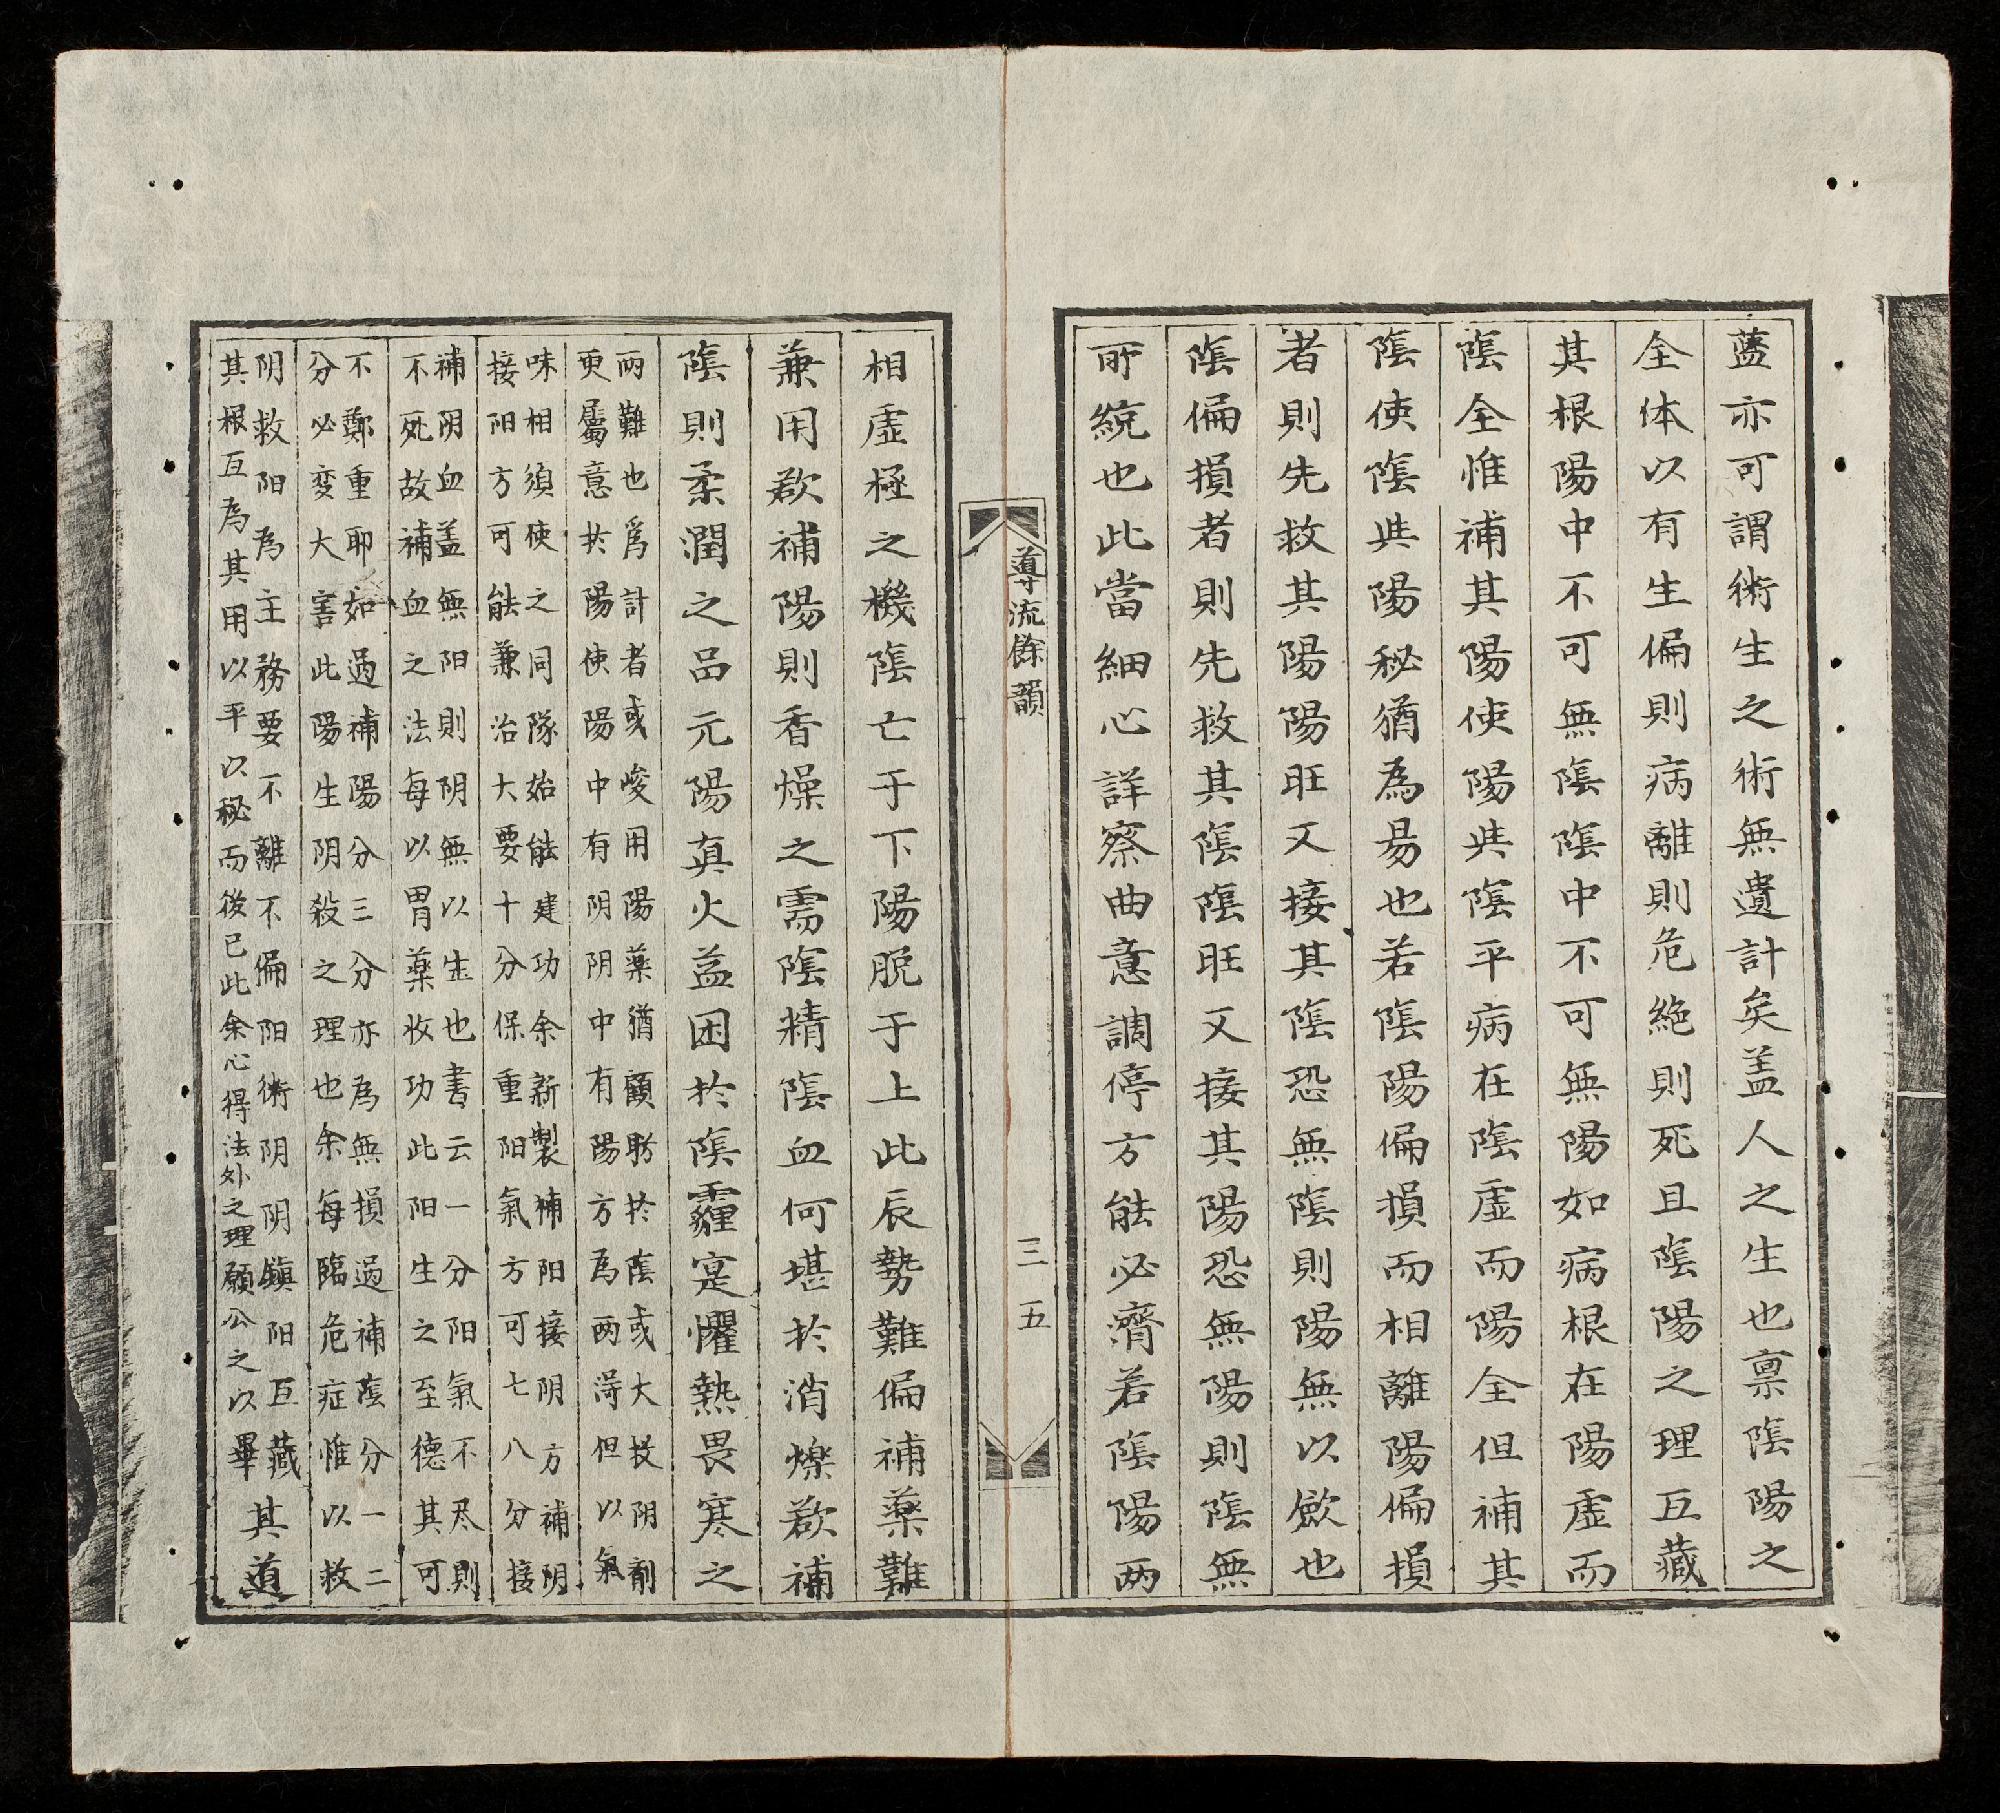 藎亦可謂術生之術無遺計矣盖人之生也禀隂陽之
全体以有生偏則病離則危絶則死且隂陽之理互藏
其根陽中不可無隂隂中不可無陽如病根在陽虛而
隂全惟補其陽使陽與隂平病在隂虛而陽全但補其
隂使隂與陽秘猶為易也若隂陽偏損而相離陽偏損
者則先救其陽陽旺又接其隂恐無隂則陽無以斂也
隂偏損者則先救其隂隂旺又接其陽恐無陽則隂無
所統也此當細心詳察曲意調停方能必濟若隂陽两
導流餘韻
三五
相虛極之機隂亡于下陽脱于上此辰勢難偏補藥難
兼用欲補陽則香燥之需隂精隂血何堪於消爍欲補
隂則柔潤之品元陽真火益困於隂霾寔懼熱畏寒之
两難也爲計者或峻用陽藥猶顧盻於隂或大投阴劑
更屬意於陽使陽中有阴阴中有陽方為两得但以氣
味相須使之同隊始能建功余新製補阳接阴方補阴
接阳方可能兼治大要十分保重阳氣方可七八分接
補阴血盖無阳則阴無以生也書云一分阳氣不尽則
不死故補血之法每以胃藥收功此阳生之至德其可
不鄭重耶如過補陽分三分亦為無損過補隂分一二
分必変大害此陽生阴殺之理也余每臨危症惟以救
阴救阳為主務要不離不偏阳術阴阴鎮阳互藏
其根互為其用以平以秘而後已此余心得法外之理願公之以畢其道